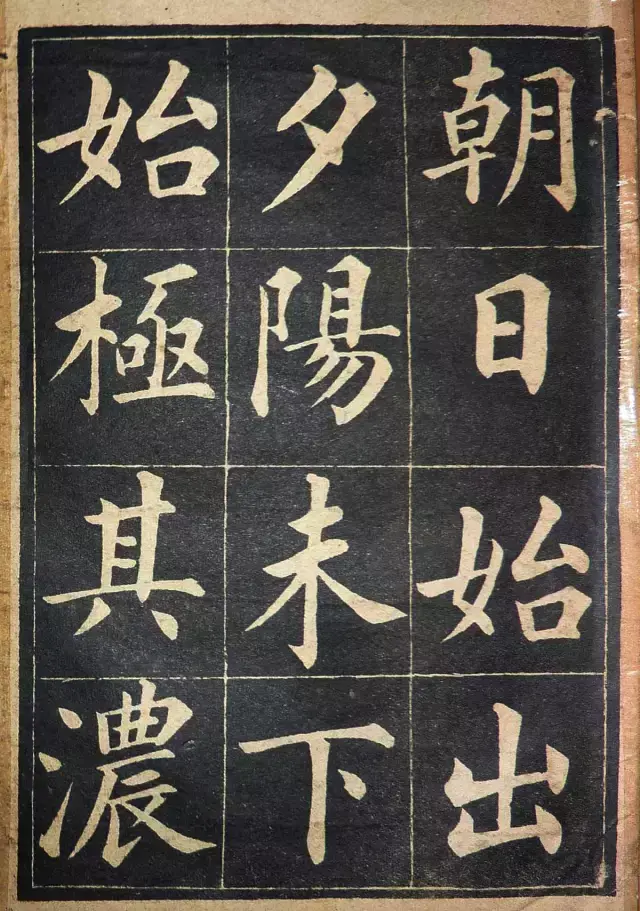 朝日始出
夕陽未下
始極其濃